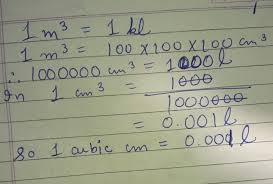 1 m³ = 1 kl
1 m³ = 100 x 100 x 100 cm³
∴ 1000000 cm³ = 1000 l
In 1 cm³ = 1000
1000000
= 0.001 l
So 1 cubic cm = 0.001 l